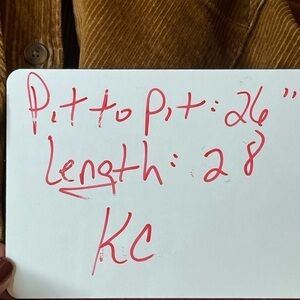 Pit to pit: 26"
Length: 28
KC